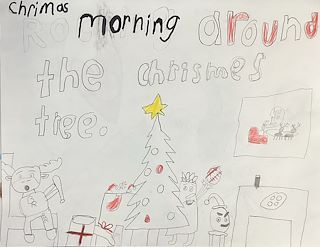 Chrimas
morning around
the chrismes
tree.